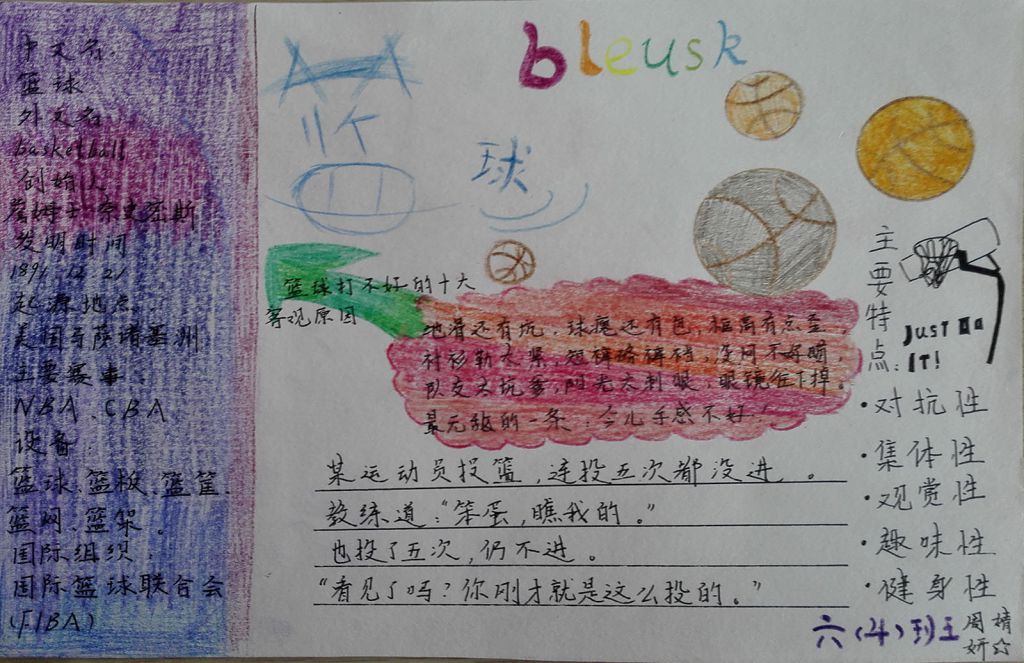 中文名:
篮球
外文名
basketball
创始人
詹姆士·奈史密斯
发明时间
1891.12.21
起源地点:
美国马萨诸塞州
主要赛事:
NBA、CBA
设备:
篮球、篮板、篮筐、
篮网、篮架。
国际组织:
国际篮球联合会
(FIBA)
bleusk
篮
球
篮球打不好的十大
客观原因
地滑还有坑,球魔还有色,框高有点歪
衬衫勒太紧,短裤
队友太坑爹,阳光太刺眼,眼镜往下掉。
最无敌的一条:今儿手感不好!
某运动员投篮,连投五次都没进。
教练道:“笨蛋,瞧我的。”
也投了五次,仍不进。
“看见了吗?你刚才就是这么投的。”
主要特点:
JUST Do
IT!
·对抗性
·集体性
·观赏性
·趣味性
·健身性
六(4)班
周婧妍